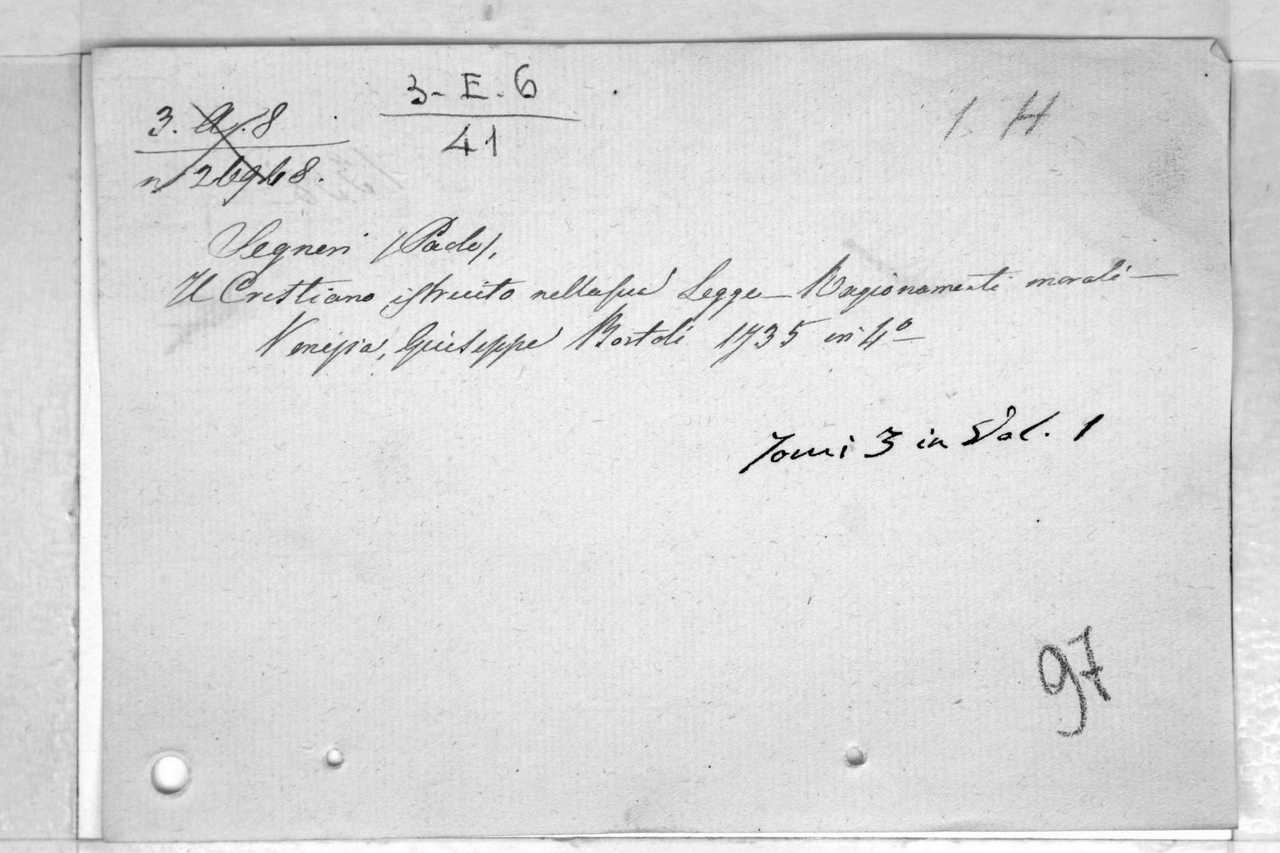 3-E.6
41
3. A. 8
n 26968.
1 H
Segneri (Paolo),
Il Cristiano istruito nella sua Legge — Ragionamenti morali —
Venezia, Giuseppe Bortoli 1735 in 4º —
Tomi 3 in Vol. 1
97